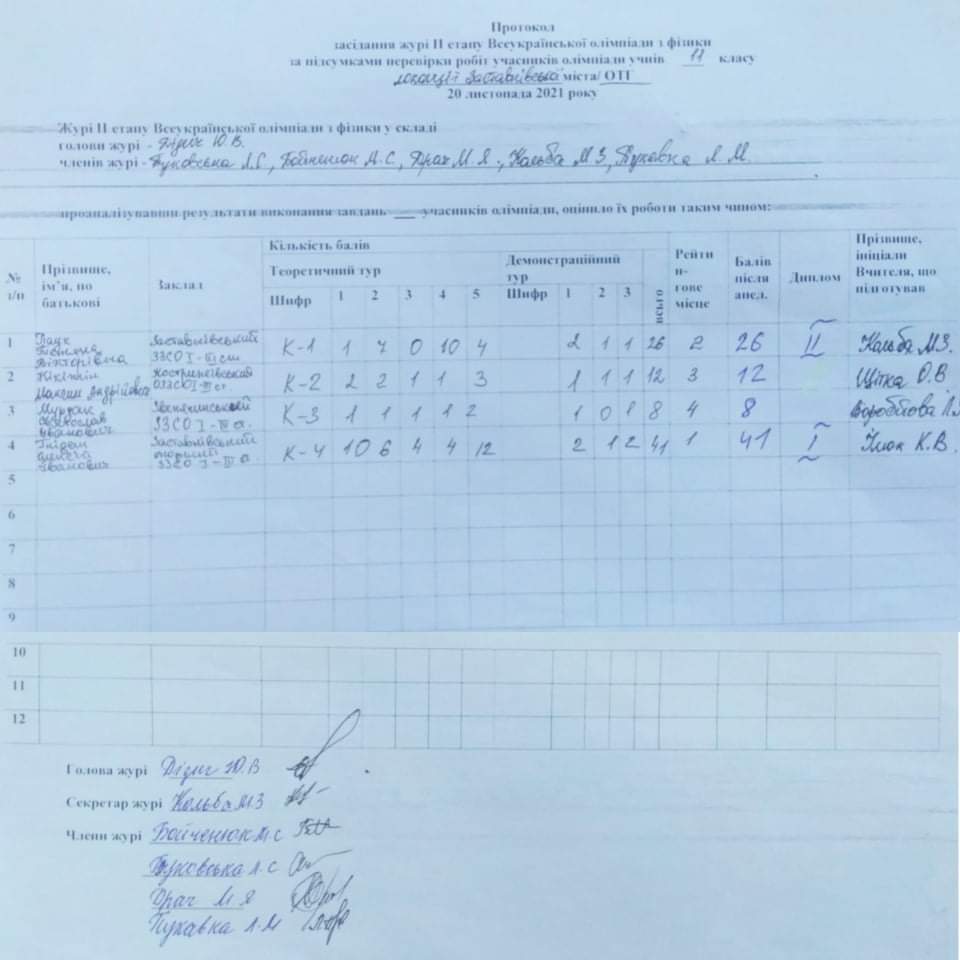 Протокол
засідання журі ІІ етапу Всеукраїнської олімпіади з фізики
за підсумками перевірки робіт учасників олімпіади учнів 11 класу
локації Заставнівської міста/ ОТГ
20 листопада 2021 року
Журі ІІ етапу Всеукраїнської олімпіади з фізики у складі
голови журі - Ю.В.
членів журі - Драч М.Я., Кольба М З
проаналізувавши результати виконання завдань ___ учасників олімпіади, оцінило їх роботи таким чином:
№ з/п Прізвище, ім'я, по батькові Заклад Кількість балів Рейтин-гове місце Балів після апел. Диплом Прізвище, ініціали Вчителя, що підготував
Теоретичний тур Демонстраційний тур всього
Шифр 1 2 3 4 5 Шифр 1 2 3
1 Паук Вікторівна Заставнівський ЗЗСО І-ІІІ ст. К-1 1 7 0 10 4 2 1 1 26 2 26 ІІ Кольба М.З.
2 Максим Андрійович К-2 2 2 1 1 3 1 1 1 12 3 12 Щітка О.В
3 Іванович ЗЗСО І-ІІІ ст. К-3 1 1 1 1 2 1 0 1 8 4 8 Воробйова
4 Іванович Заставнівський ЗЗСО І-ІІІ ст. К-4 10 6 4 4 12 2 1 2 41 1 41 І К.В.
5
6
7
8
9
10
11
12
Голова журі Ю.В
Секретар журі Кольба М З
Члени журі Бойченюк М С
Л. С
Драч М Я
Л.М